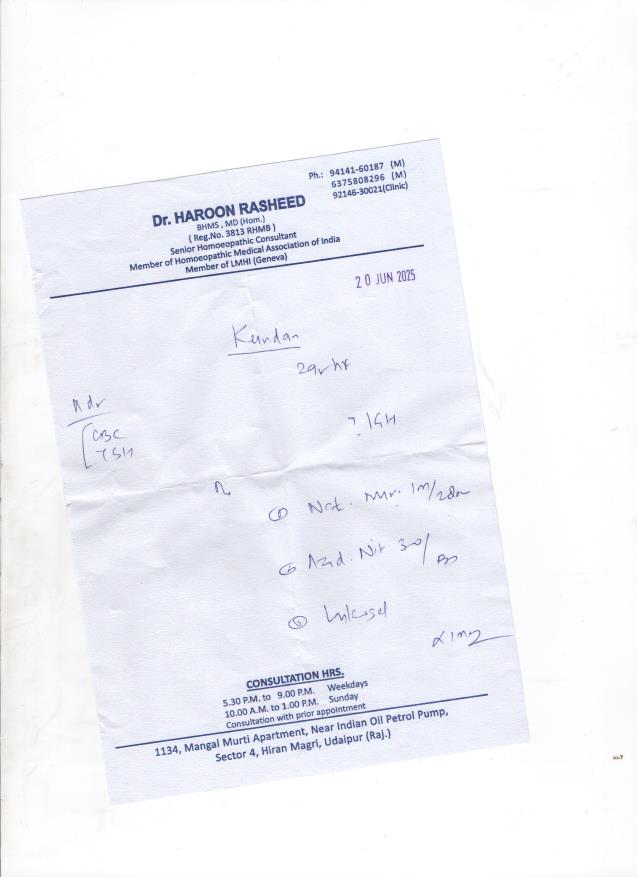 Ph.: 94141-60187 (M)
6375808296 (M)
92146-30021(Clinic)
Dr. HAROON RASHEED
BHMS, MD (Hom.)
( Reg.No. 3813 RHMB )
Senior Homoeopathic Consultant
Member of Homoeopathic Medical Association of India
Member of LMHI (Geneva)
20 JUN 2025
Kundan
Adv
CBC
TSH
Nat. Mur. 1M/
Acid. Nit 30/
CONSULTATION HRS.
5.30 P.M. to 9.00 P.M. Weekdays
10.00 A.M. to 1.00 P.M. Sunday
Consultation with prior appointment
1134, Mangal Murti Apartment, Near Indian Oil Petrol Pump,
Sector 4, Hiran Magri, Udaipur (Raj.)